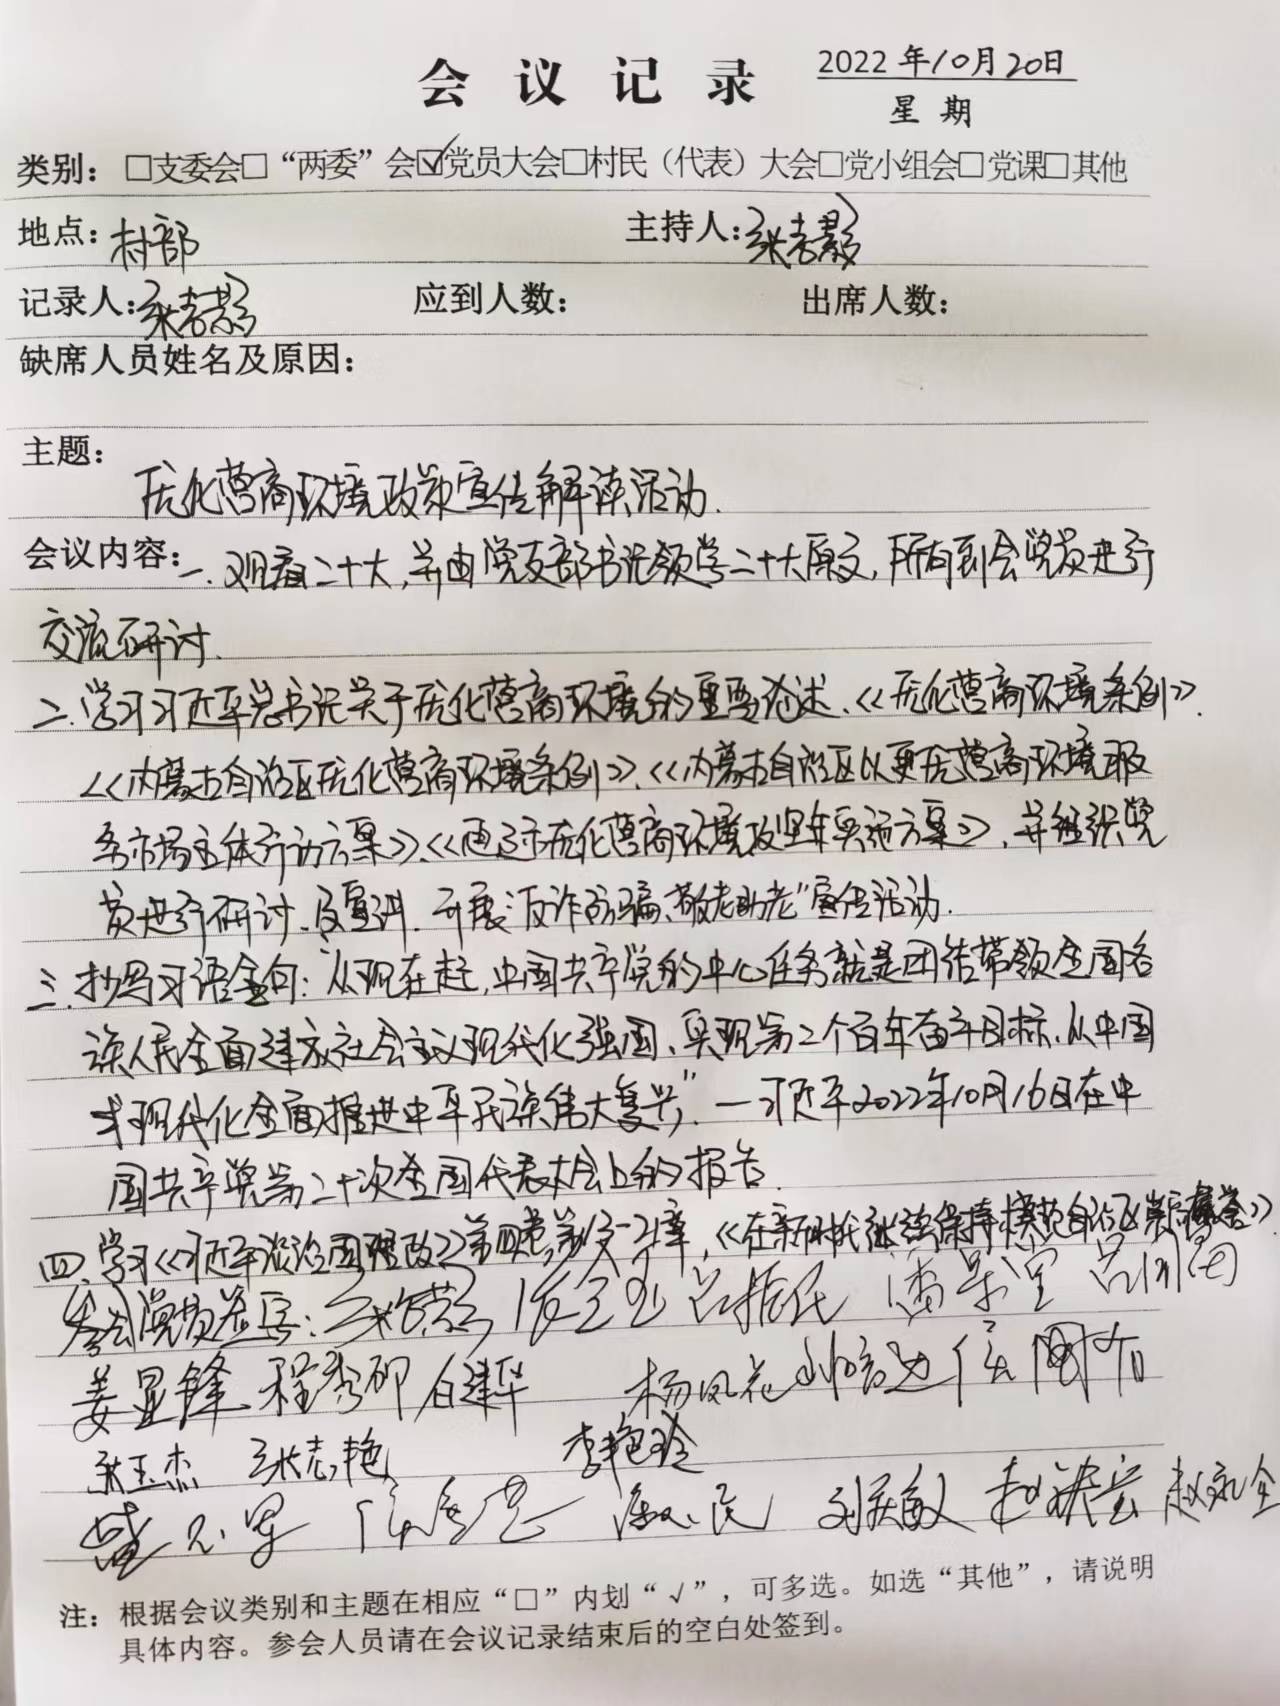 会议记录
2022年10月20日
星期
类别：□支委会□“两委”会☑党员大会□村民（代表）大会□党小组会□党课□其他
地点：村部 主持人：
记录人： 应到人数： 出席人数：
缺席人员姓名及原因：
主题：
优化营商环境政策宣传解读活动.
会议内容：一.观看二十大,并由党支部书记领学二十大原文,所有到会党员进行
交流研讨.
二.学习习近平总书记关于优化营商环境的重要论述、《优化营商环境条例》.
《内蒙古自治区优化营商环境条例》、《内蒙古自治区以更优营商环境服
务市场主体行动方案》、《通辽市优化营商环境攻坚年实施方案》,并组织党
员进行研讨.及宣讲.开展“反诈防骗、敬老助老”宣传活动.
三.抄写习语金句:“从现在起,中国共产党的中心任务就是团结带领全国各
族人民全面建成社会主义现代化强国、实现第二个百年奋斗目标,从中国
式现代化全面推进中华民族伟大复兴”.—习近平2022年10月16日在中
国共产党第二十次全国代表大会上的报告.
四.学习《习近平谈治国理政》第四卷, 《在新时代 保持模范自治区崇高荣誉》
参会党员签字: 吕振民
姜显锋 程秀卿 白建华 杨凤花
张玉杰 张志艳 李艳玲
刘庆敏 赵永全
注：根据会议类别和主题在相应“□”内划“√”，可多选。如选“其他”，请说明
具体内容。参会人员请在会议记录结束后的空白处签到。